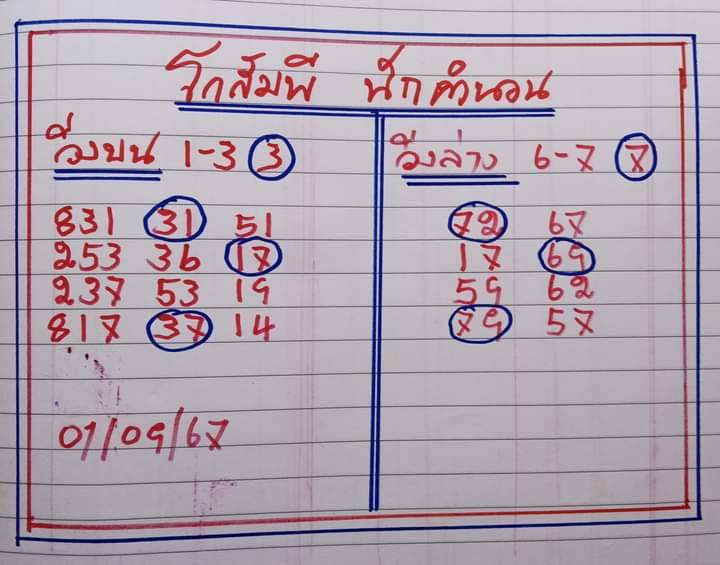 โกสัมพี นักคำนวน
วิ่งบน 1-3 3
831 31 51
253 36 17
237 53 19
817 37 14
01/09/67
วิ่งล่าง 6-7 7
72 67
17 69
59 62
79 57